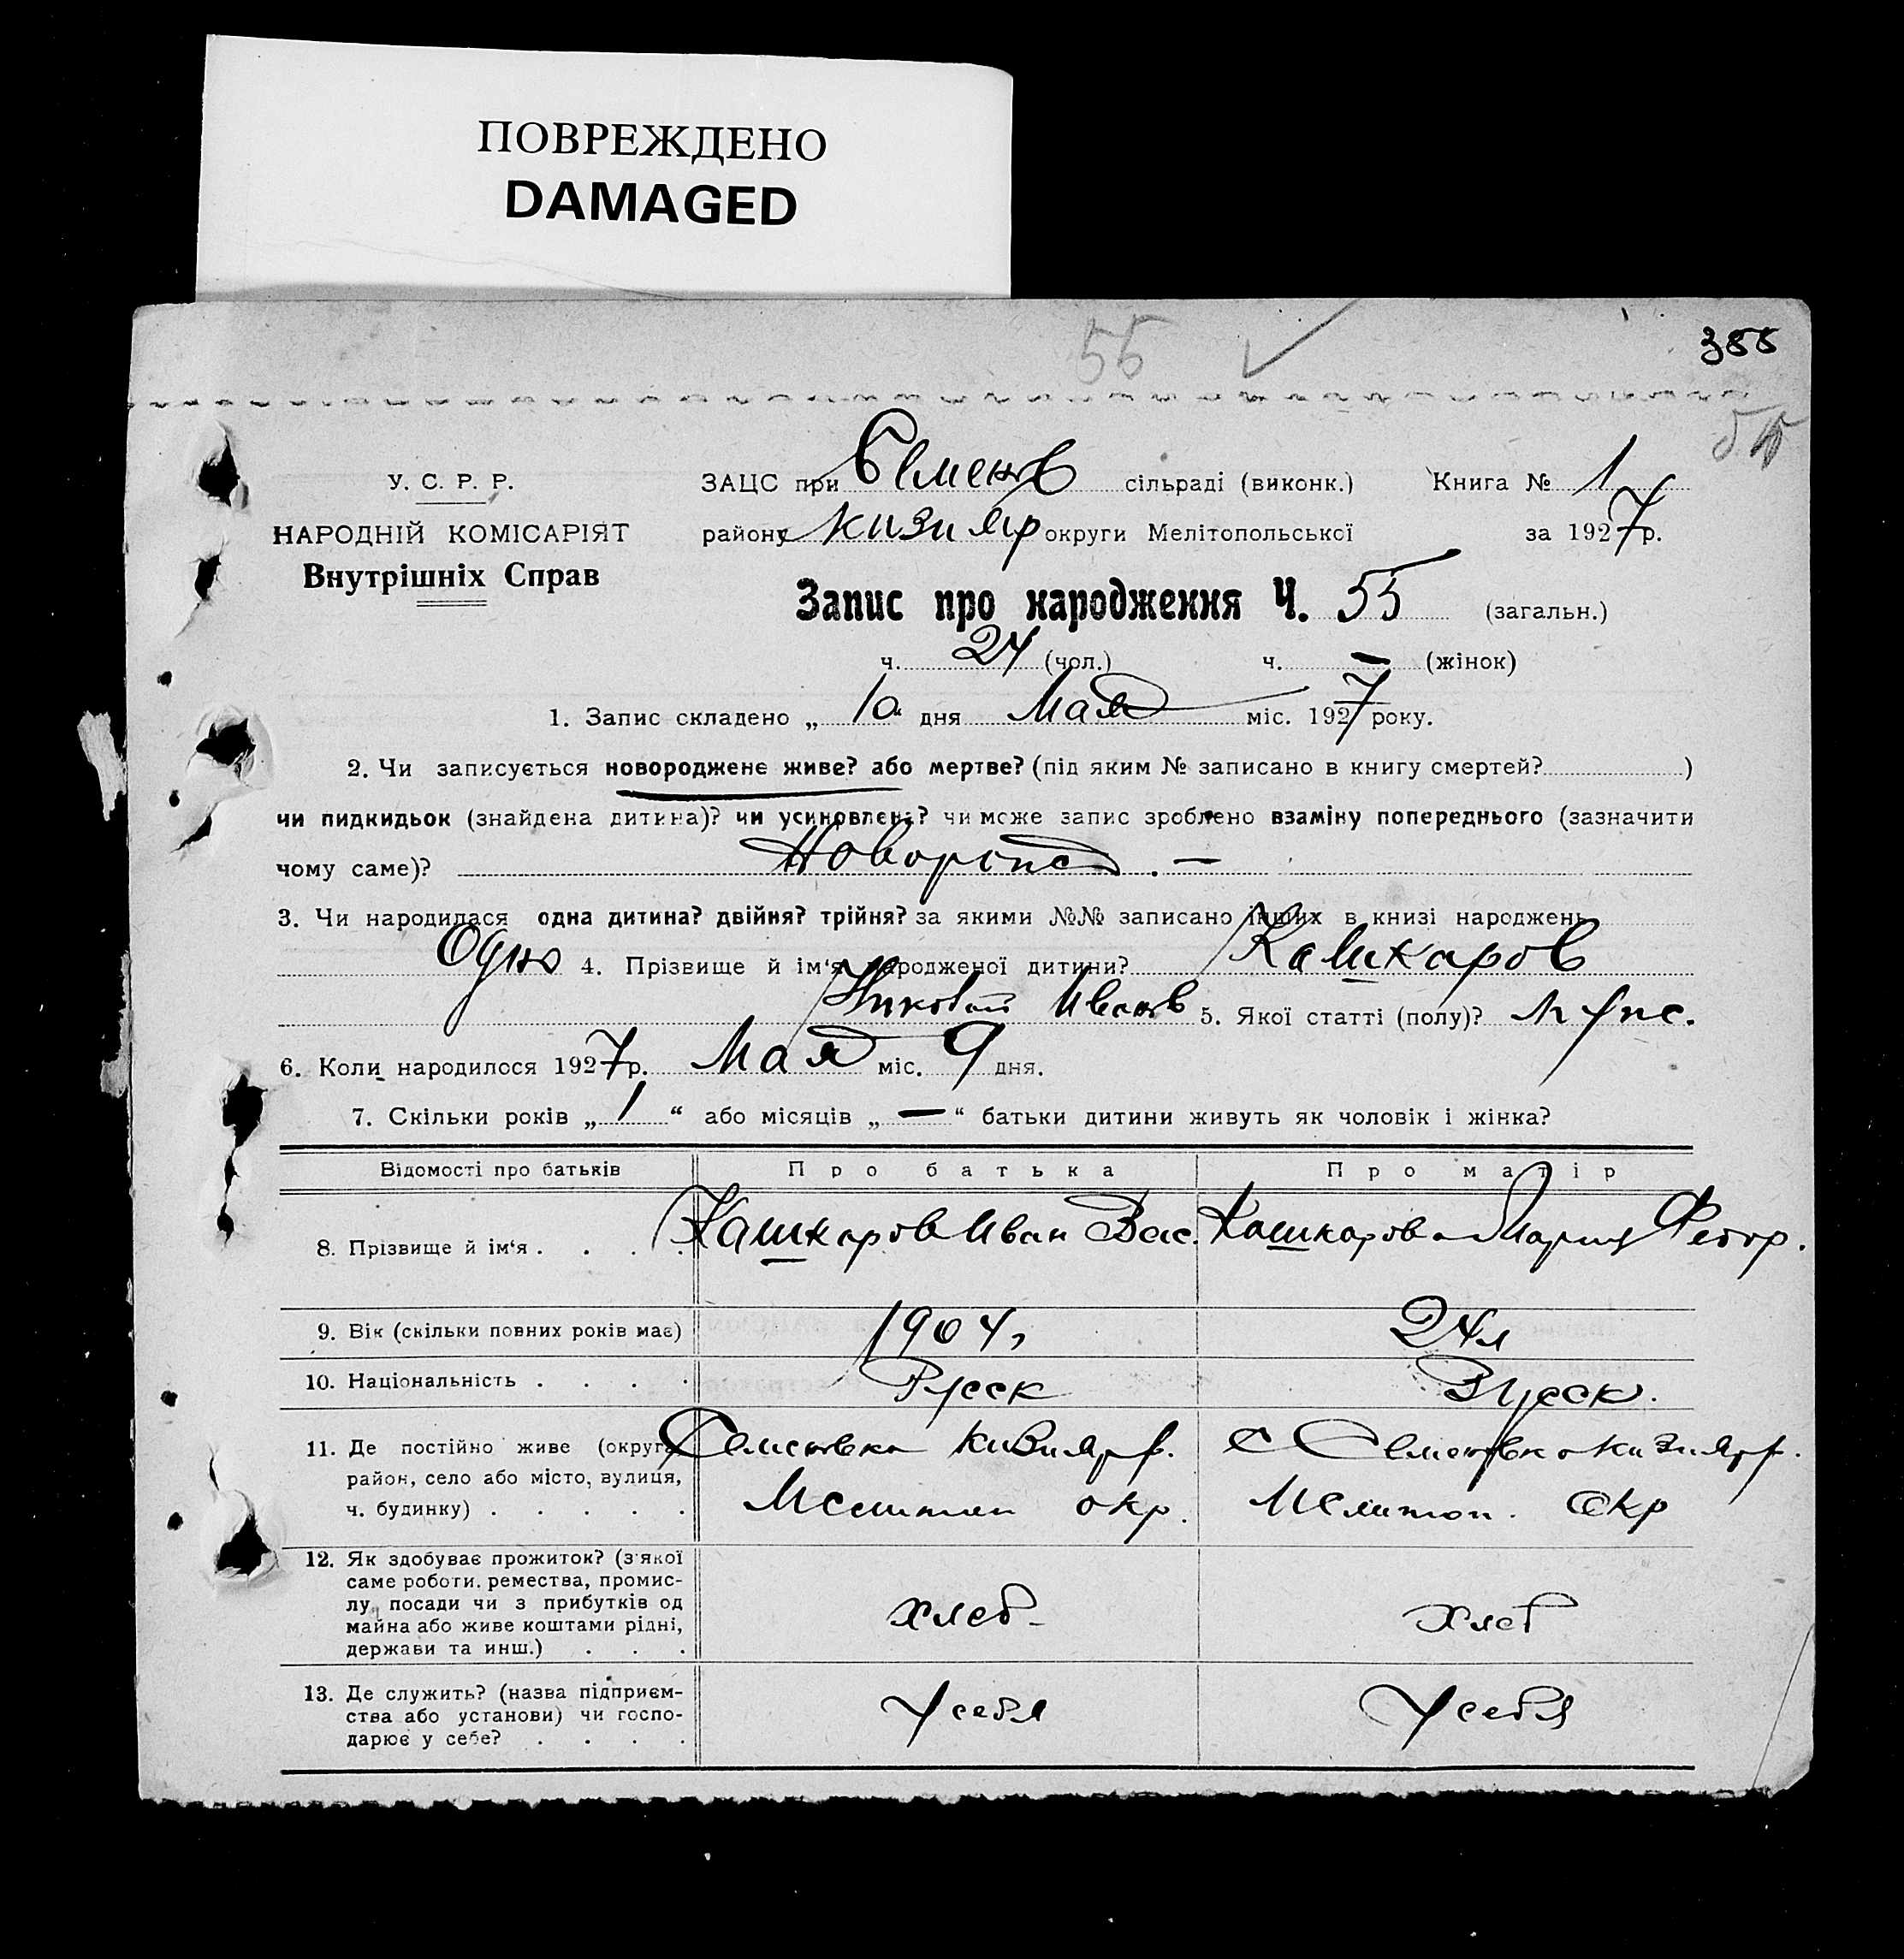 ПОВРЕЖДЕНО
DAMAGED
55
385
У. С. Р. Р.
НАРОДНІЙ КОМІСАРІЯТ
Внутрішніх Справ
ЗАЦС при Семенов сільраді (виконк.) Книга № 1
району Кизияр округи Мелітопольської за 1927 р.
Запис про народження Ч. 55 (загальн.)
ч. 24 (чол.) ч. — (жінок)
1. Запис складено „10“ дня Мая міс. 1927 року.
2. Чи записується новороджене живе? або мертве? (під яким № записано в книгу смертей? )
чи пидкидьок (знайдена дитина)? чи усиновлена? чи може запис зроблено взаміну попереднього (зазначити
чому саме)?
3. Чи народилася одна дитина? двійня? трійня? за якими №№ записано інших в книзі народжень
Одно 4. Прізвище й ім‘я народженої дитини? Кашкаров
Николай Иванов 5. Якої статті (полу)? муж.
6. Коли народилося 1927 р. Мая міс. 9 дня.
7. Скільки років „1“ або місяців „—“ батьки дитини живуть як чоловік і жінка?
Відомості про батьків Про батька Про матір
8. Прізвище й ім‘я . . . . Кашкаров Иван Вас. Кашкарова Мария Федор.
9. Вік (скільки повних років має) 1904 24 л
10. Національність . . . . Русск Русск.
11. Де постійно живе (округа, Семеновка Кизияр р. С Семеновка Кизияр р.
район, село або місто, вулиця,
ч. будинку) . . . . . Мелитоп окр. Мелитоп. Окр
12. Як здобуває прожиток? (з якої
саме роботи. ремества, промис-
лу, посади чи з прибутків од
майна або живе коштами рідні, хлеб- хлеб
держави та инш.) . . .
13. Де служить? (назва підприєм-
ства або установи) чи госпо- У себя У себя
дарює у себе? . . . .